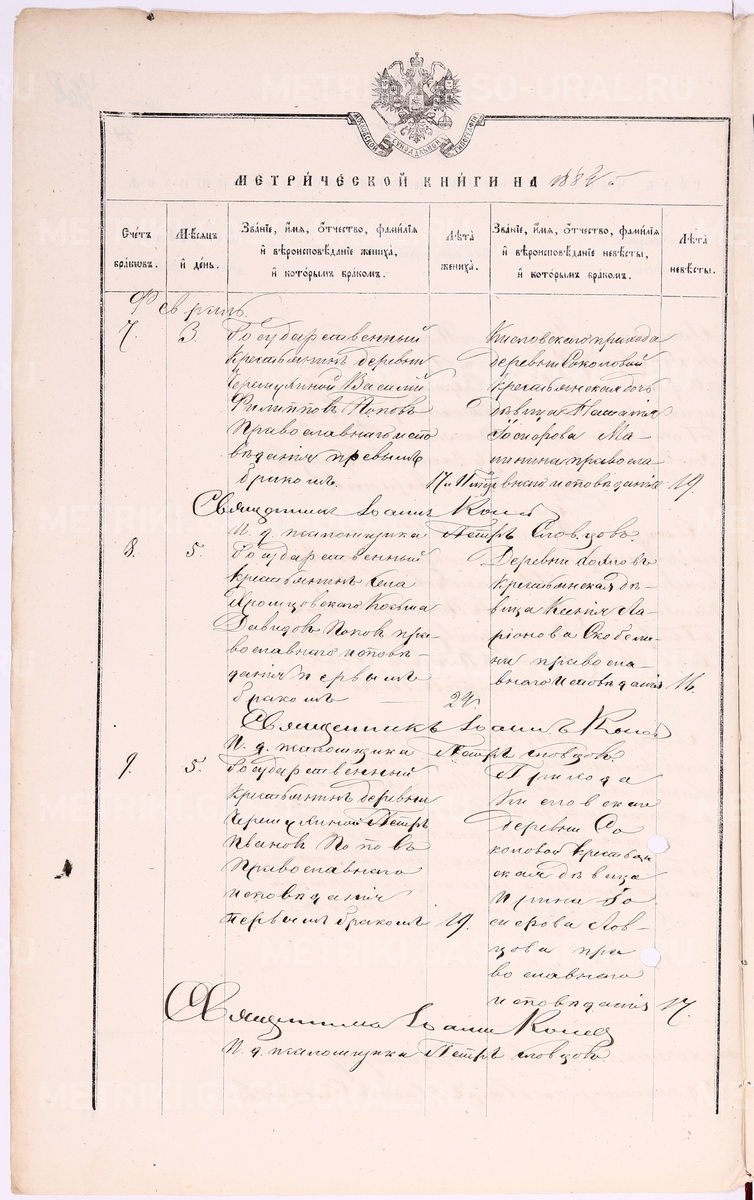 МЕТРИ́ЧЕСКОЙ КНИ́ГИ НА 1882 г.
Сче́тъ бра́ковъ.
Мѣ́сяцъ и҆ де́нь.
Зва́нїе, и҆́мя, ѻ҆́тчество, фамѝлїя и҆ вѣроисповѣ́данїе жениха̀, и҆ кото́рымъ бра́комъ.
Лѣ́та жениха̀.
Зва́нїе, и҆́мя, ѻ҆́тчество, фамѝлїя и҆ вѣроисповѣ́данїе невѣ́сты, и҆ кото́рымъ бра́комъ.
Лѣ́та невѣ́сты.
Февраль
7.
3
Государственный
крестьянинъ деревни
Черемухиной Василий
Филипповъ Поповъ
Православнаго испо
вѣданія первымъ
бракомъ.
17 и
Кисловскаго прихода
деревни Соколовой
крестьянская дочь
дѣвица Наталія
правосла
внаго исповѣданія
19.
Священникъ Іоаннъ
И. д. псаломщика Петръ Словцовъ.
8.
5.
Государственный
крестьянинъ села
Козьма
Давидовъ Поповъ пра
вославнаго исповѣ
данія первымъ
бракомъ
24.
Деревни
крестьянская дѣ
вица Ксенія Ла
ріонова Скобели
на правосла
внаго исповѣданія
16.
Священникъ Іоаннъ
И. д. псаломщика Петръ Словцовъ.
9.
5.
Государственный
крестьянинъ деревни
Черемухиной Петръ
Ивановъ Поповъ
Православнаго
исповѣданія
первымъ бракомъ
19.
Прихода
Кисловскаго
деревни Со
коловой крестьян
ская дѣвица
Ирина
пра
вославнаго
исповѣданія
17.
Священникъ Іоаннъ
И. д. псаломщика Петръ Словцовъ.
METRIKI.GASO-URAL.RU